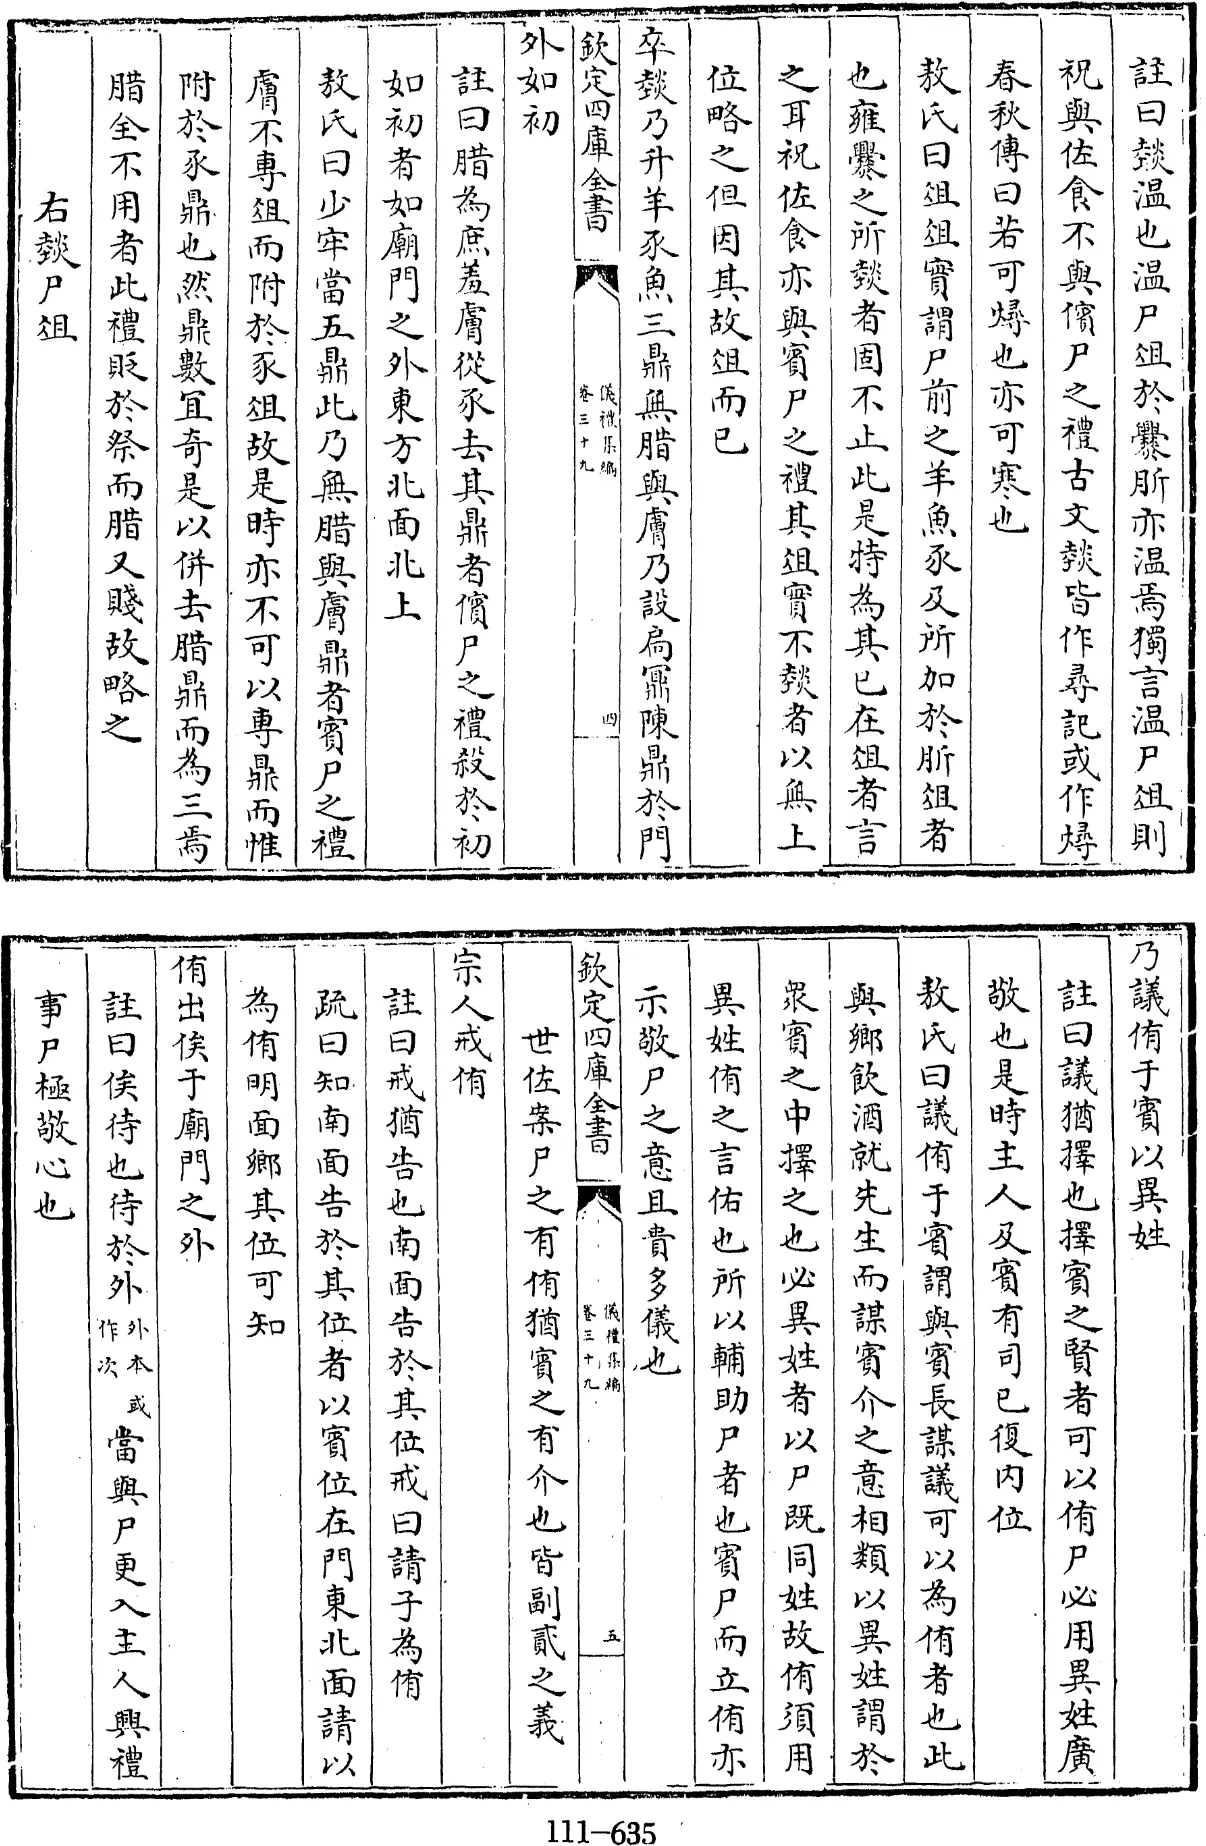 註曰燅溫也溫尸俎於爨肵亦溫焉獨言溫尸俎則
祝與佐食不與儐尸之禮古文燅皆作尋記或作燖
春秋傳曰若可燖也亦可寒也
敖氏曰俎俎實謂尸前之羊魚豕及所加於肵俎者
也雍爨之所燅者固不止此是特為其已在俎者言
之耳祝佐食亦與賓尸之禮其俎實不燅者以無上
位略之但因其故俎而已
卒燅乃升羊豕魚三鼎無腊與膚乃設扃鼏陳鼎於門
欽定四庫全書
儀禮集編
卷三十九
四
外如初
註曰腊為庶羞膚從豕去其鼎者儐尸之禮殺於初
如初者如廟門之外東方北面北上
敖氏曰少牢當五鼎此乃無腊與膚鼎者賓尸之禮
膚不專俎而附於豕俎故是時亦不可以專鼎而惟
附於豕鼎也然鼎數宜奇是以併去腊鼎而為三焉
腊全不用者此禮貶於祭而腊又賤故略之
右燅尸俎
乃議侑于賓以異姓
註曰議猶擇也擇賓之賢者可以侑尸必用異姓廣
敬也是時主人及賓有司已復内位
敖氏曰議侑于賓謂與賓長謀議可以為侑者也此
與鄉飲酒就先生而謀賓介之意相類以異姓謂於
衆賓之中擇之也必異姓者以尸既同姓故侑須用
異姓侑之言佑也所以輔助尸者也賓尸而立侑亦
示敬尸之意且貴多儀也
欽定四庫全書
儀禮集編
卷三十九
五
世佐案尸之有侑猶賓之有介也皆副貳之義
宗人戒侑
註曰戒猶告也南面告於其位戒曰請子為侑
疏曰知南面告於其位者以賓位在門東北面請以
為侑明面鄉其位可知
侑出俟于廟門之外
註曰俟待也待於外外本或作次當與尸更入主人興禮
事尸極敬心也
111-635